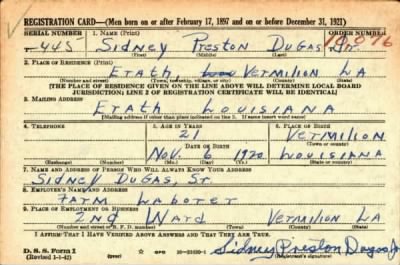 REGISTRATION CARD—(Men born on or after February 17, 1897 and on or before December 31, 1921)
SERIAL NUMBER 1. NAME (Print) ORDER NUMBER
T-445 Sidney Preston DuGas, Jr. 10,076
(First) (Middle) (Last)
2. PLACE OF RESIDENCE (Print)
Erath, Vermilion LA
(Number and street) (Town, township, village, or city) (County) (State)
[THE PLACE OF RESIDENCE GIVEN ON THE LINE ABOVE WILL DETERMINE LOCAL BOARD
JURISDICTION; LINE 2 OF REGISTRATION CERTIFICATE WILL BE IDENTICAL]
3. MAILING ADDRESS
Erath Louisiana
[Mailing address if other than place indicated on line 2. If same insert word same]
4. TELEPHONE 5. AGE IN YEARS 6. PLACE OF BIRTH
21 Vermilion
DATE OF BIRTH (Town or county)
Nov. 6 1920 Louisiana
(Exchange) (Number) (Mo.) (Day) (Yr.) (State or country)
7. NAME AND ADDRESS OF PERSON WHO WILL ALWAYS KNOW YOUR ADDRESS
Sidney DuGas, Sr.
8. EMPLOYER'S NAME AND ADDRESS
Farm Laborer
9. PLACE OF EMPLOYMENT OR BUSINESS
2nd Ward Vermilion LA
(Number and street or R. F. D. number) (Town) (County) (State)
I AFFIRM THAT I HAVE VERIFIED ABOVE ANSWERS AND THAT THEY ARE TRUE.
D. S. S. Form 1 GPO Sidney Preston Dugas Jr
(Revised 1-1-42) (over) (Registrant's signature)